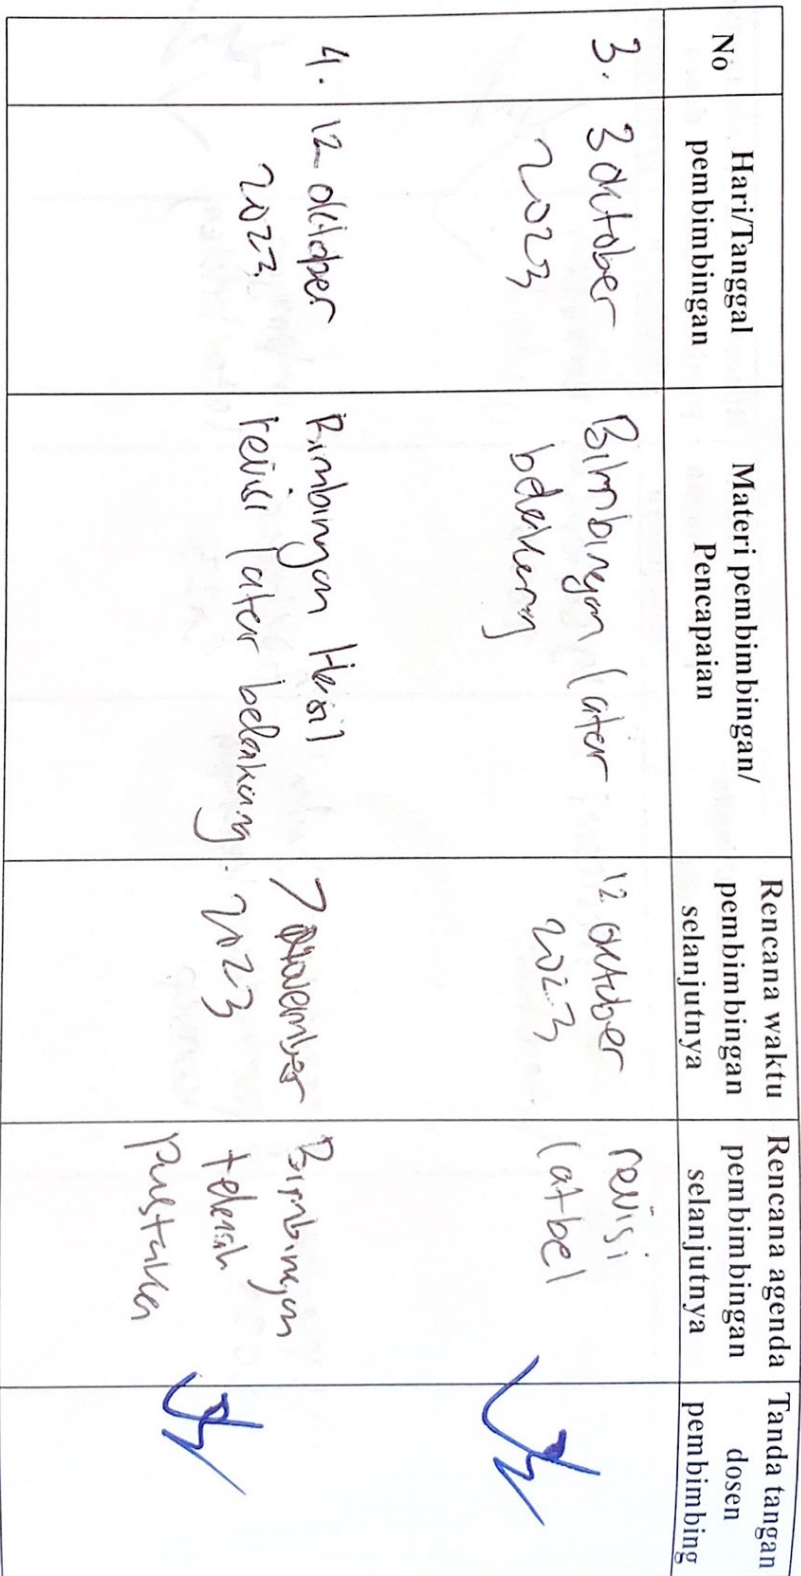 No
Hari/Tanggal
pembimbingan
Materi pembimbingan/
Pencapaian
Rencana waktu
pembimbingan
selanjutnya
Rencana agenda
pembimbingan
selanjutnya
Tanda tangan
dosen
pembimbing
3.
3 Oktober
2023
Bimbingan latar
belakang
12 Oktober
2023
revisi
latbel
4.
12 oktober
2023
Bimbingan Hasil
revisi latar belakang.
7 November
2023
Bimbingan
telaah
pustaka